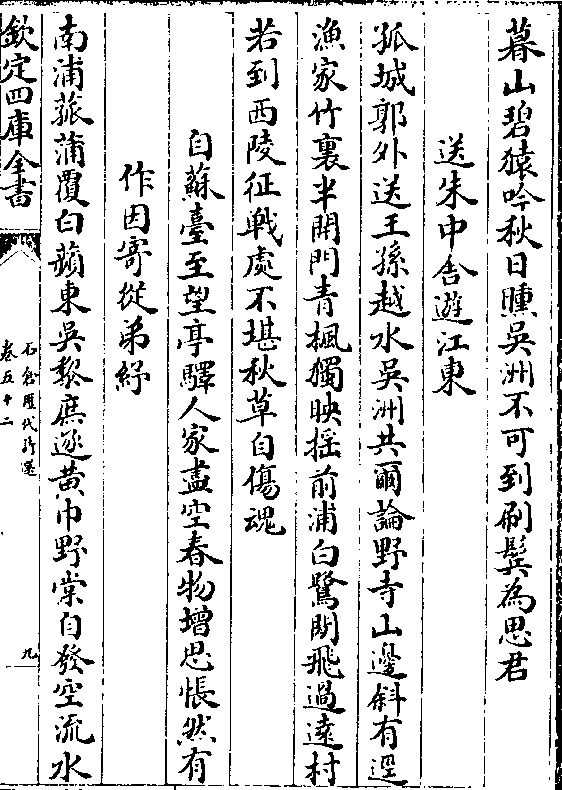 暮山碧猿吟秋日曛吳洲不可到刷鬂為思君
送朱中舍遊江東
孤城郭外送王孫越水吳洲共爾論野寺山邊斜有逕
漁家竹裏半開門青楓獨映揺前浦白鷺閒飛過遠村
若到西陵征戰處不堪秋草自傷魂
自蘇臺至望亭驛人家盡空春物增思悵然有
作因寄從弟紓
南浦菰蒲覆白蘋東吳黎庶逐黄巾野棠自發空流水
欽定四庫全書
石倉歴代詩選
卷五十二
九